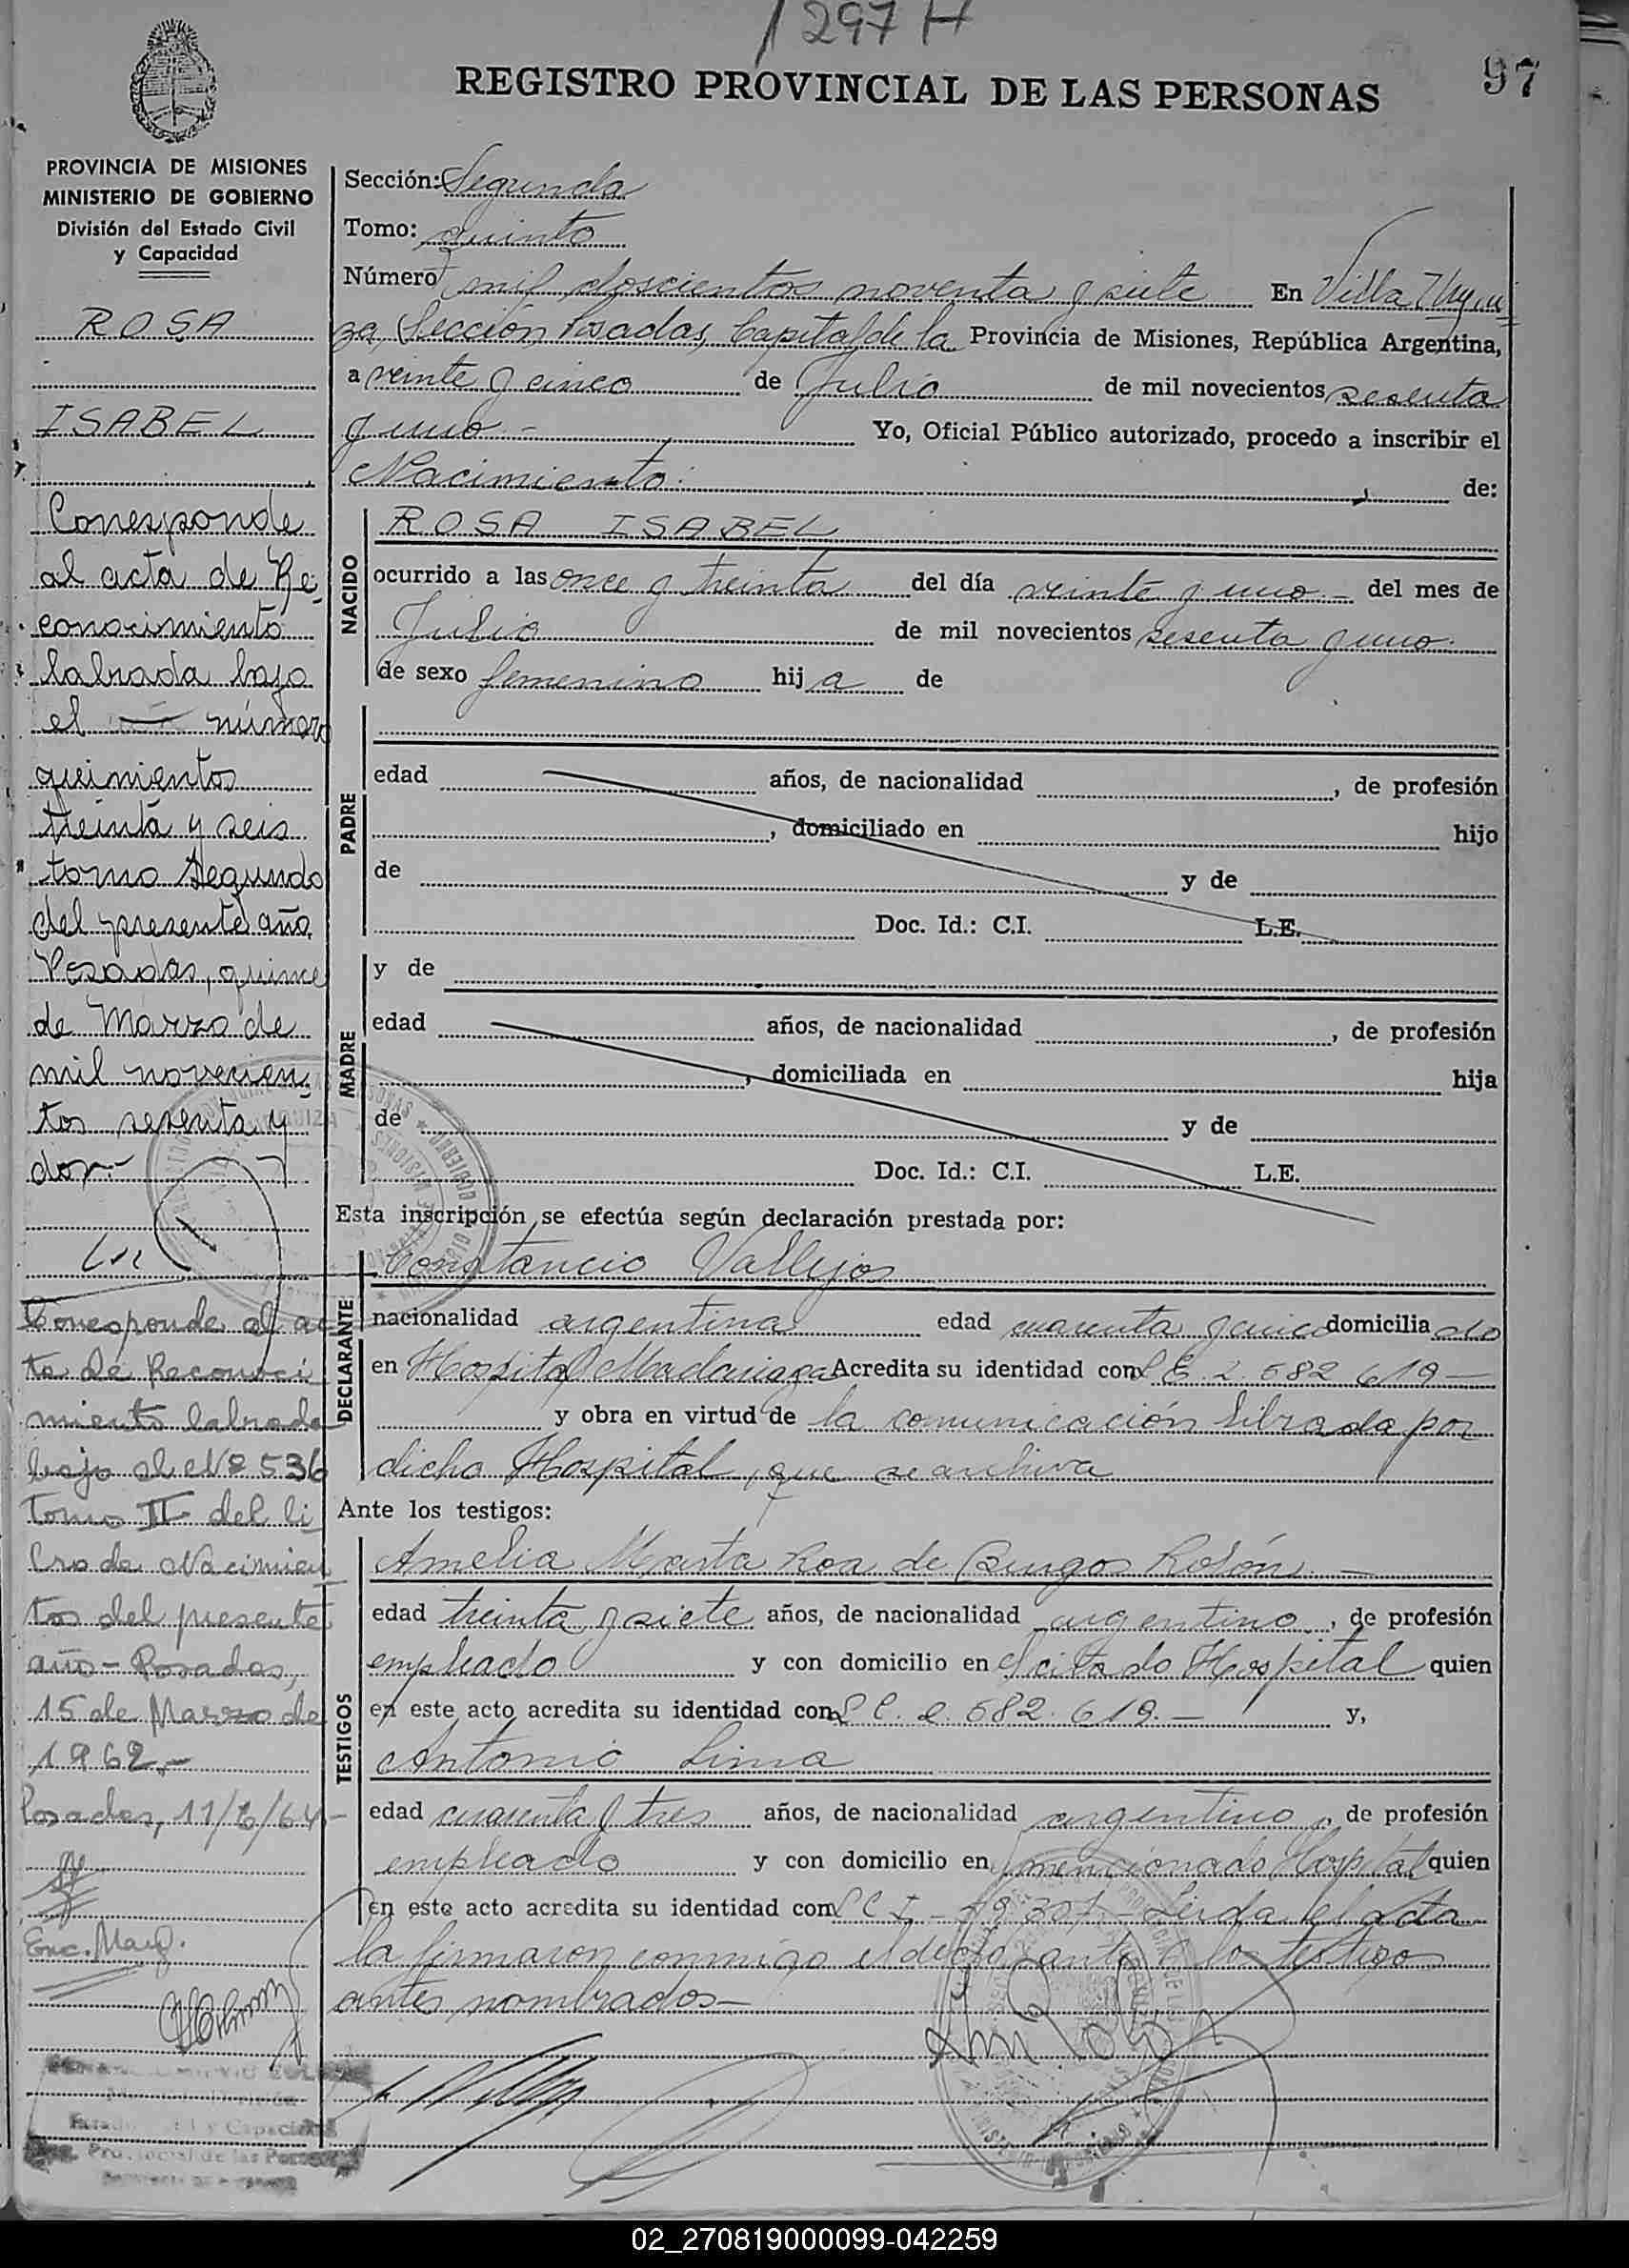 1297 H
REGISTRO PROVINCIAL DE LAS PERSONAS
97
PROVINCIA DE MISIONES
MINISTERIO DE GOBIERNO
División del Estado Civil
y Capacidad
ROSA
ISABEL
Corresponde
al acta de Re-
conocimiento
labrada bajo
el número
quinientos
treinta y seis
tomo Segundo
del presente año,
Posadas, quince
de Marzo de
mil novecien-
tos sesenta y
dos.-
Corresponde al ac
ta de Reconoci
miento labrada
bajo el Nº 536
tomo II del li
bro de Nacimien
tos del presente
año - Posadas,
15 de Marzo de
1962.-
Posadas, 11/6/64.-
Enc. Marg.
Sección: Segunda
Tomo: quinto
Número mil doscientos noventa y siete En Villa Urqui
za, Sección Posadas, Capital de la Provincia de Misiones, República Argentina,
a veinte y cinco de Julio de mil novecientos sesenta
y uno - Yo, Oficial Público autorizado, procedo a inscribir el
Nacimiento: de:
NACIDO
ROSA ISABEL
ocurrido a las once y treinta del día veinte y uno - del mes de
Julio de mil novecientos sesenta y uno.
de sexo femenino hija de
PADRE
edad años, de nacionalidad , de profesión
, domiciliado en hijo
de y de
Doc. Id.: C.I. L.E.
MADRE
y de
edad años, de nacionalidad , de profesión
, domiciliada en hija
de y de
Doc. Id.: C.I. L.E.
Esta inscripción se efectúa según declaración prestada por:
DECLARANTE
Constancio Vallejos
nacionalidad argentina edad cuarenta y cinco domiciliado
en Hospital Madariaga Acredita su identidad con L E. 2.582.619 -
y obra en virtud de la comunicación librada por
dicho Hospital, que se archiva
Ante los testigos:
TESTIGOS
Amelia Marta Roa de Burgos Rolón -
edad treinta y siete años, de nacionalidad argentino, de profesión
empleado y con domicilio en el citado Hospital quien
en este acto acredita su identidad con L C. 2.582.619.- y,
Antonio Lima
edad cuarenta y tres años, de nacionalidad argentino, de profesión
empleado y con domicilio en mencionado Hospital quien
en este acto acredita su identidad con C I - 19.301 - Leida el acta
la firmaron conmigo el declarante y los testigos
antes nombrados -
02_270819000099-042259